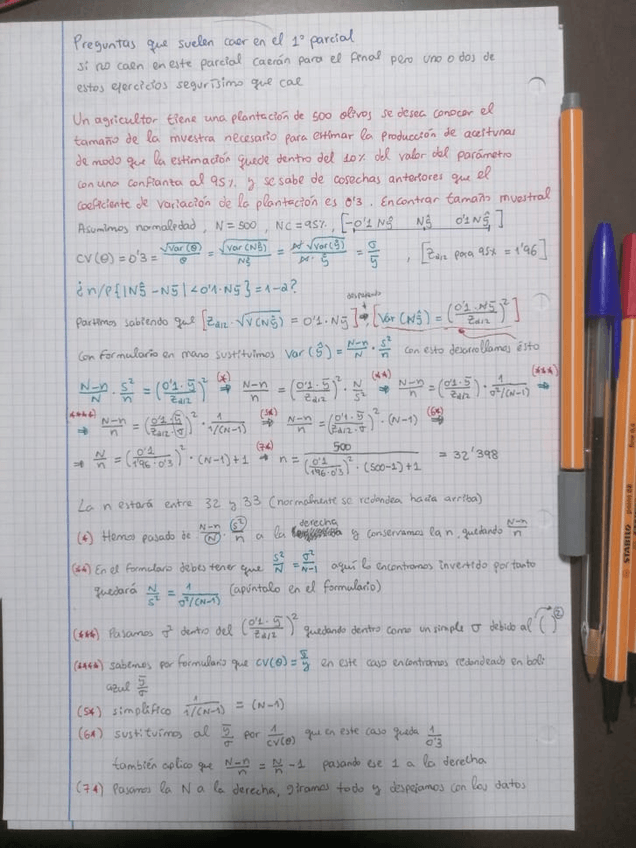 Preguntas que suelen caer en el 1º parcial
si no caen en este parcial caerán para el final pero uno o dos de
estos ejercicios segurísimo que cae
Un agricultor tiene una plantación de 500 olivos se desea conocer el
tamaño de la muestra necesario para estimar la producción de aceitunas
de modo que la estimación quede dentro del 10% del valor del parámetro
con una confianza al 95% y se sabe de cosechas anteriores que el
coeficiente de variación de la plantación es 0'3. Encontrar tamaño muestral
Asumimos normalidad, N=500, NC=95%, [-0'1Nŷ Nŷ 0'1Nŷ]
CV(θ)=0'3= √Var(θ)/θ = √Var(Nŷ)/Nŷ = N·√Var(ŷ)/N·ŷ = σ/ȳ , [Zα/2 para 95% = 1'96]
¿n/P{|Nŷ-Nȳ|<0'1·Nȳ}=1-α?
despejando
Partimos sabiendo que [Zα/2·√V(Nŷ) = 0'1·Nȳ] → [Var(Nŷ) = (0'1·Nȳ/Zα/2)²]
Con formulario en mano sustituimos Var(ŷ) = N-n/N · s²/n con esto desarrollamos ésto
N-n/N · s²/n = (0'1·ȳ/Zα/2)² (*)⇒ N-n/n = (0'1·ȳ/Zα/2)² · N/s² (**)⇒ N-n/n = (0'1·ȳ/Zα/2)² · 1/σ²/(N-1) (***)⇒
(****)⇒ N-n/n = (0'1·ȳ/Zα/2·σ)² · 1/1/(N-1) (5*)⇒ N-n/n = (0'1·ȳ/Zα/2·σ)² · (N-1) (6*)⇒
⇒ N/n = (0'1/1'96·0'3)² · (N-1)+1 (7*)⇒ n = 500/(0'1/1'96·0'3)² · (500-1)+1 = 32'398
La n estará entre 32 y 33 (normalmente se redondea hacia arriba)
(*) Hemos pasado de N-n/N · s²/n a la derecha y conservamos la n, quedando N-n/n
(**) En el formulario debes tener que s²/N = σ²/N-1 aquí lo encontramos invertido por tanto
quedará N/s² = 1/σ²/(N-1) (apúntalo en el formulario)
(***) Pasamos σ² dentro del (0'1·ȳ/Zα/2)² quedando dentro como un simple σ debido al ( )²
(****) sabemos por formulario que CV(θ)=σ/ȳ en este caso encontramos redondeado en boli
azul ȳ/σ
(5*) simplifico 1/1/(N-1) = (N-1)
(6*) sustituimos al ȳ/σ por 1/CV(θ) que en este caso queda 1/0'3
también aplico que N-n/n = N/n -1 pasando ese 1 a la derecha
(7*) Pasamos la N a la derecha, giramos todo y despejamos con los datos
STABILO